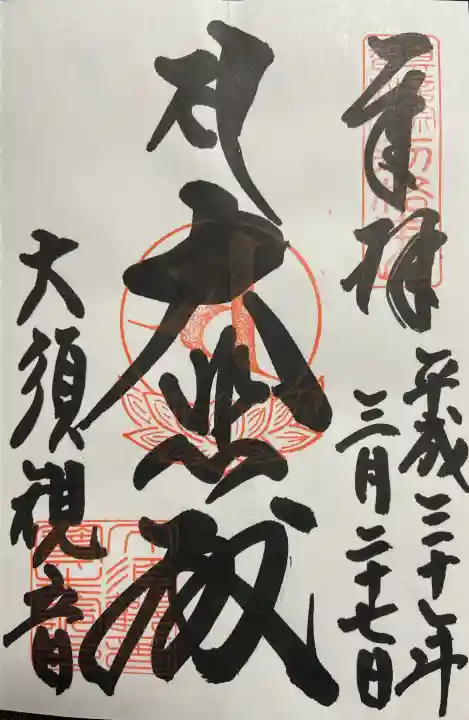 奉拝
平成三十年
三月二十七日
大悲殿
大須観音